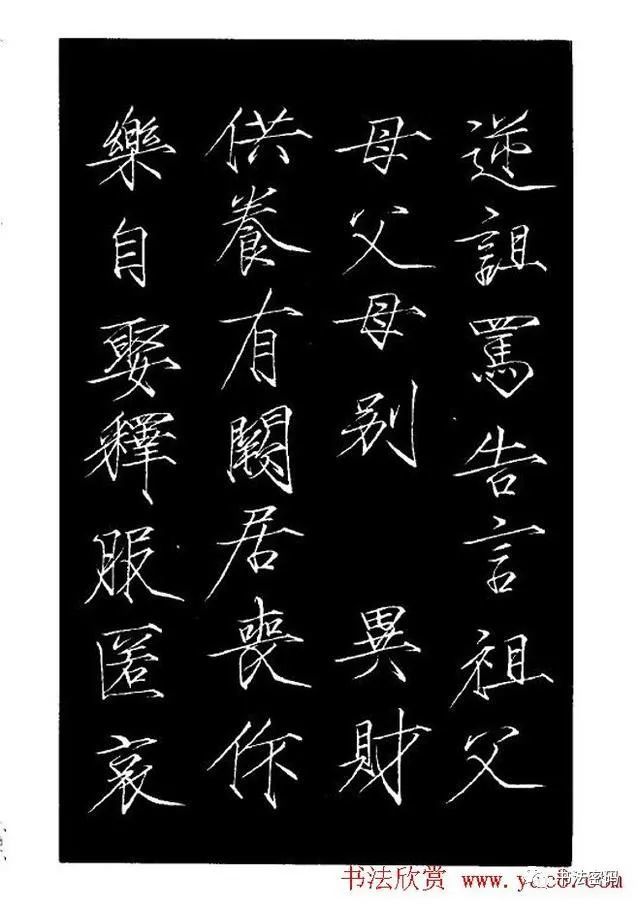 逆詛罵告言祖父
母父母别異財
供養有闕居喪作
樂自娶釋服匿哀
书法欣赏
书法密码